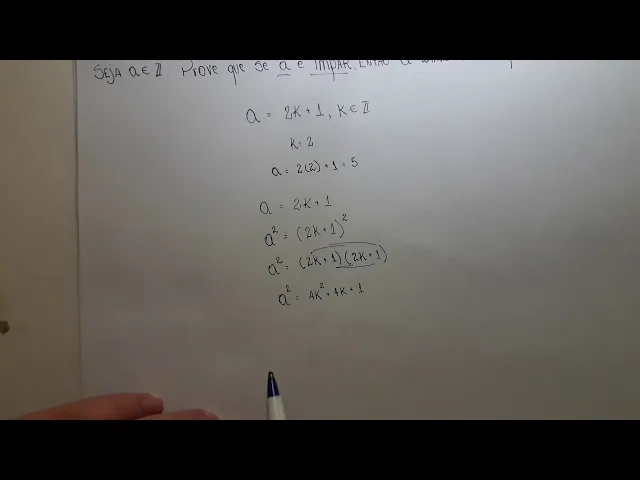 SEJA a ∈ ℤ. PROVE QUE SE a É ÍMPAR, ENTÃO a
a = 2K + 1, K ∈ ℤ
K = 2
a = 2(2) + 1 = 5
a = 2K + 1
a² = (2K + 1)²
a² = (2K + 1)(2K + 1)
a² = 4K² + 4K + 1